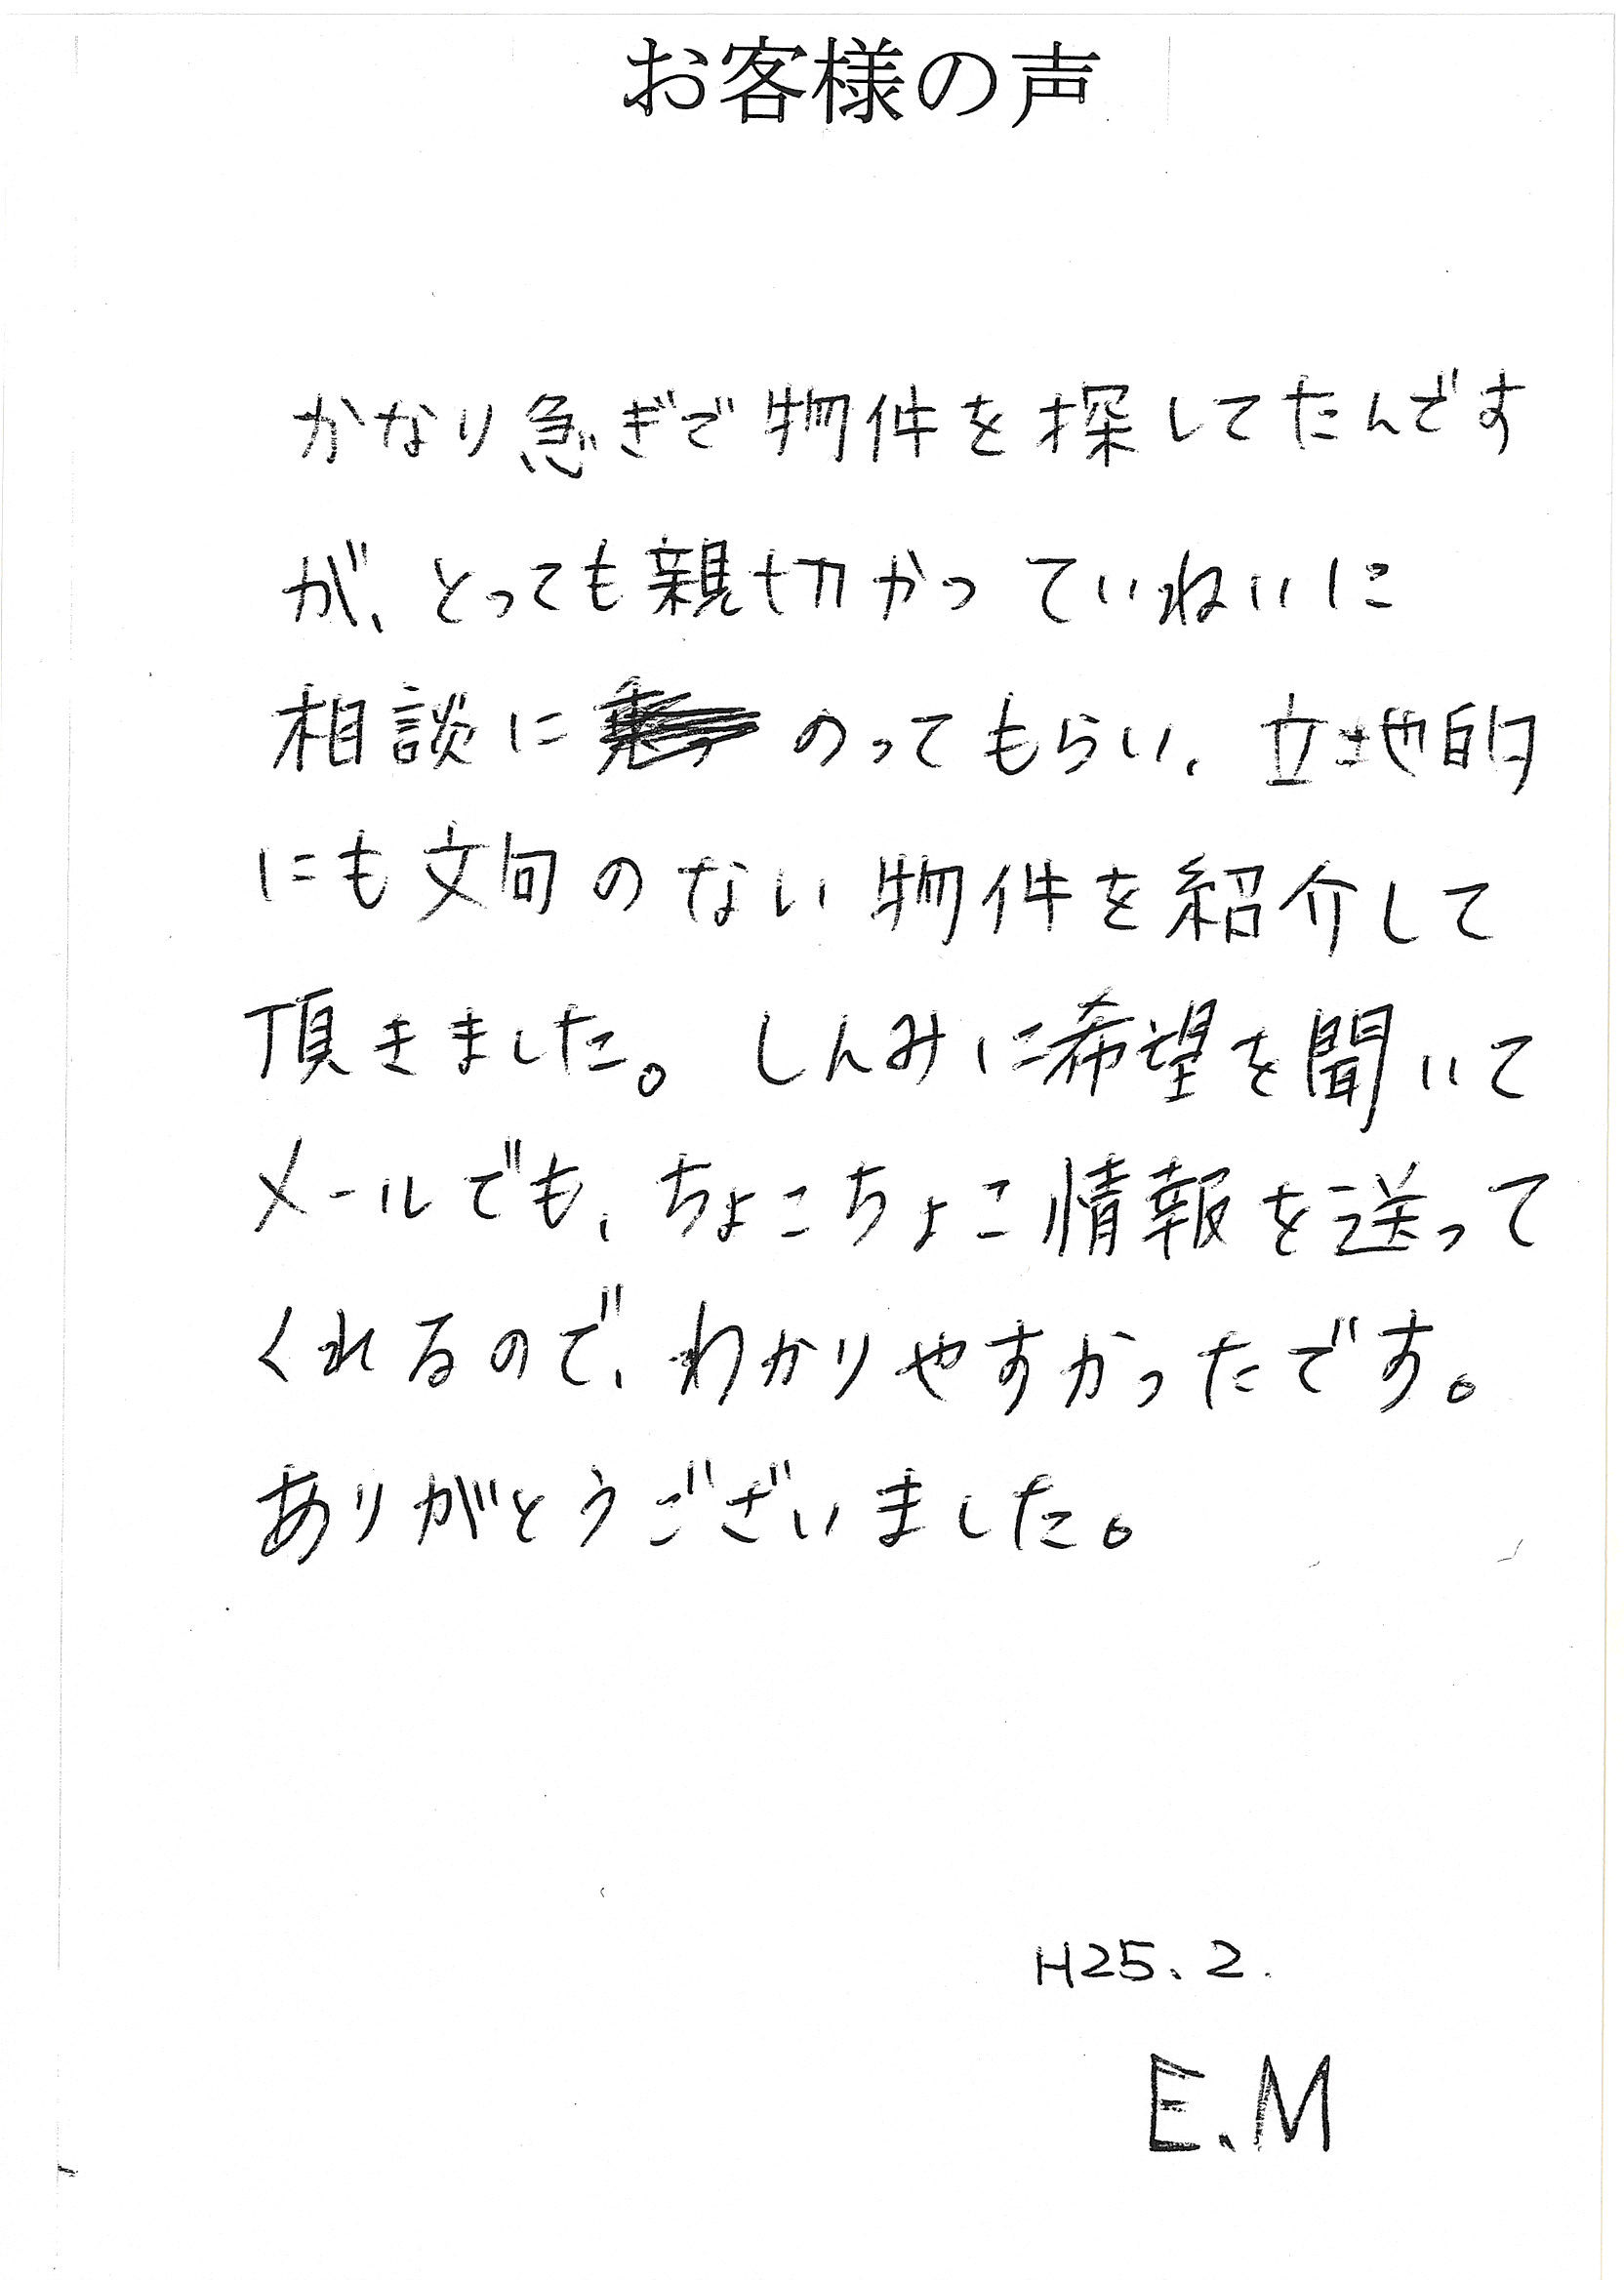 お客様の声
かなり急ぎで物件を探してたんです
が、とっても親切かつていねいに
相談にのってもらい、立地的
にも文句のない物件を紹介して
頂きました。しんみに希望を聞いて
メールでも、ちょこちょこ情報を送って
くれるので、わかりやすかったです。
ありがとうございました。
H25.2.
E.M